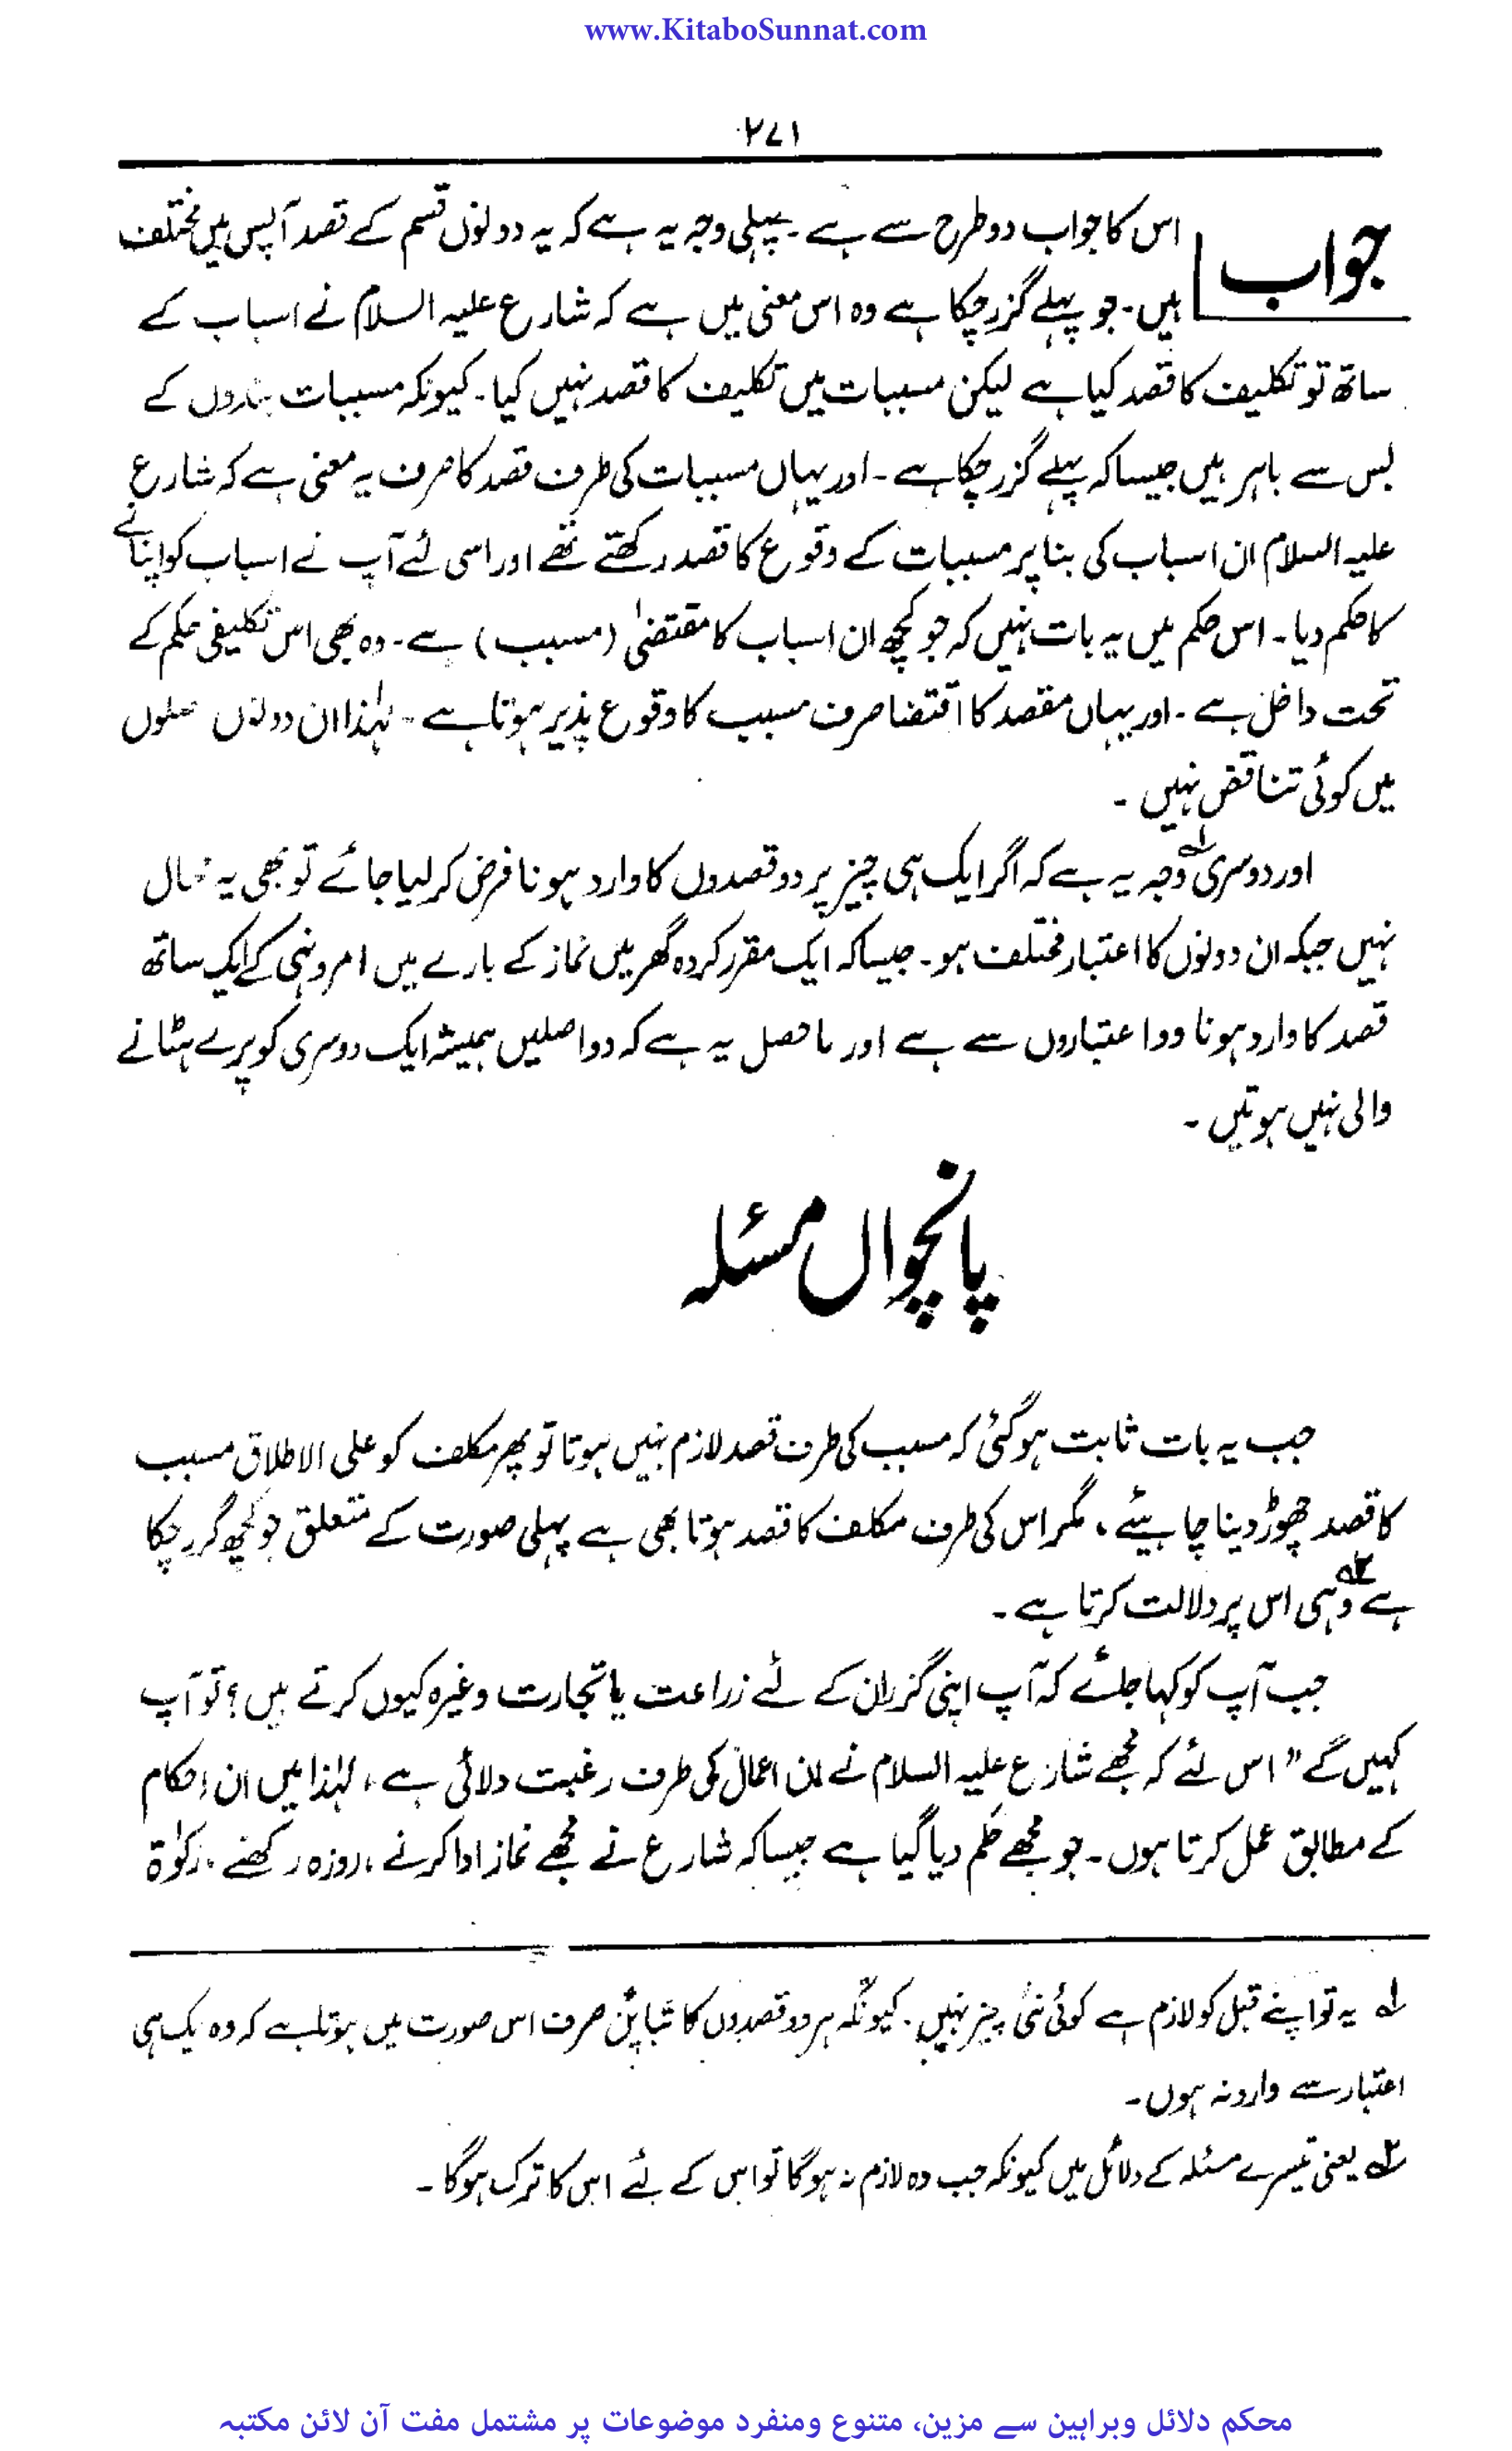 www.KitaboSunnat.com
۲۷۱
جواب
اس کا جواب دو طرح سے ہے ۔ پہلی وجہ یہ ہے کہ یہ دونوں قسم کے قصد آپس میں مختلف
ہیں ۔ جو پہلے گزر چکا ہے وہ اس معنی میں ہے کہ شارع علیہ السلام نے اسباب کے
ساتھ تو تکلیف کا قصد کیا ہے لیکن مسببات میں تکلیف کا قصد نہیں کیا ۔ کیونکہ مسببات بندوں کے
بس سے باہر ہیں جیسا کہ پہلے گزر چکا ہے ۔ اور یہاں مسببات کی طرف قصد کا صرف یہ معنی ہے کہ شارع
علیہ السلام ان اسباب کی بنا پر مسببات کے وقوع کا قصد رکھتے تھے اور اسی لئے آپ نے اسباب کو اپنانے
کا حکم دیا ۔ اس حکم میں یہ بات نہیں کہ جو کچھ ان اسباب کا مقتضیٰ (مسبب) ہے ۔ وہ بھی اس تکلیفی حکم کے
تحت داخل ہے ۔ اور یہاں مقصد کا اقتضا صرف مسبب کا وقوع پذیر ہوتا ہے ۔ لہٰذا ان دونوں
میں کوئی تناقض نہیں ۔
اور دوسری لہ وجہ یہ ہے کہ اگر ایک ہی چیز پر دو قصدوں کا وارد ہونا فرض کر لیا جائے تو بھی یہ محال
نہیں جبکہ ان دونوں کا اعتبار مختلف ہو ۔ جیسا کہ ایک مقرر کردہ گھر میں نماز کے بارے میں امر و نہی کے ایک ساتھ
قصد کا وارد ہونا دو اعتباروں سے ہے اور ماحصل یہ ہے کہ دو اصلیں ہمیشہ ایک دوسری کو پرے ہٹانے
والی نہیں ہوتیں ۔
پانچواں مسئلہ
جب یہ بات ثابت ہو گئی کہ مسبب کی طرف قصد لازم نہیں ہوتا تو پھر مکلف کو علی الاطلاق مسبب
کا قصد چھوڑ دینا چاہیئے ، مگر اس کی طرف مکلف کا قصد ہوتا بھی ہے پہلی صورت کے متعلق جو کچھ گزر چکا
ہے ۲ہ وہی اس پر دلالت کرتا ہے ۔
جب آپ کو کہا جائے کہ آپ اپنی گزران کے لئے زراعت یا تجارت وغیرہ کیوں کرتے ہیں ؟ تو آپ
کہیں گے " اس لئے کہ مجھے شارع علیہ السلام نے ان اعمال کی طرف رغبت دلائی ہے ، لہٰذا میں ان احکام
کے مطابق عمل کرتا ہوں ۔ جو مجھے حکم دیا گیا ہے جیسا کہ شارع نے مجھے نماز ادا کرنے ، روزہ رکھنے ، زکوٰۃ
لہ یہ تو اپنے قبل کو لازم ہے کوئی نئی چیز نہیں . کیونکہ ہر دو قصدوں کا تباین صرف اس صورت میں ہوتا ہے کہ وہ یک ہی
اعتبار سے وارد نہ ہوں ۔
۲ہ یعنی تیسرے مسئلہ کے دلائل میں کیونکہ جب وہ لازم نہ ہوگا تو اس کے لئے اس کا ترک ہوگا ۔
محکم دلائل وبراہین سے مزین، متنوع ومنفرد موضوعات پر مشتمل مفت آن لائن مکتبہ